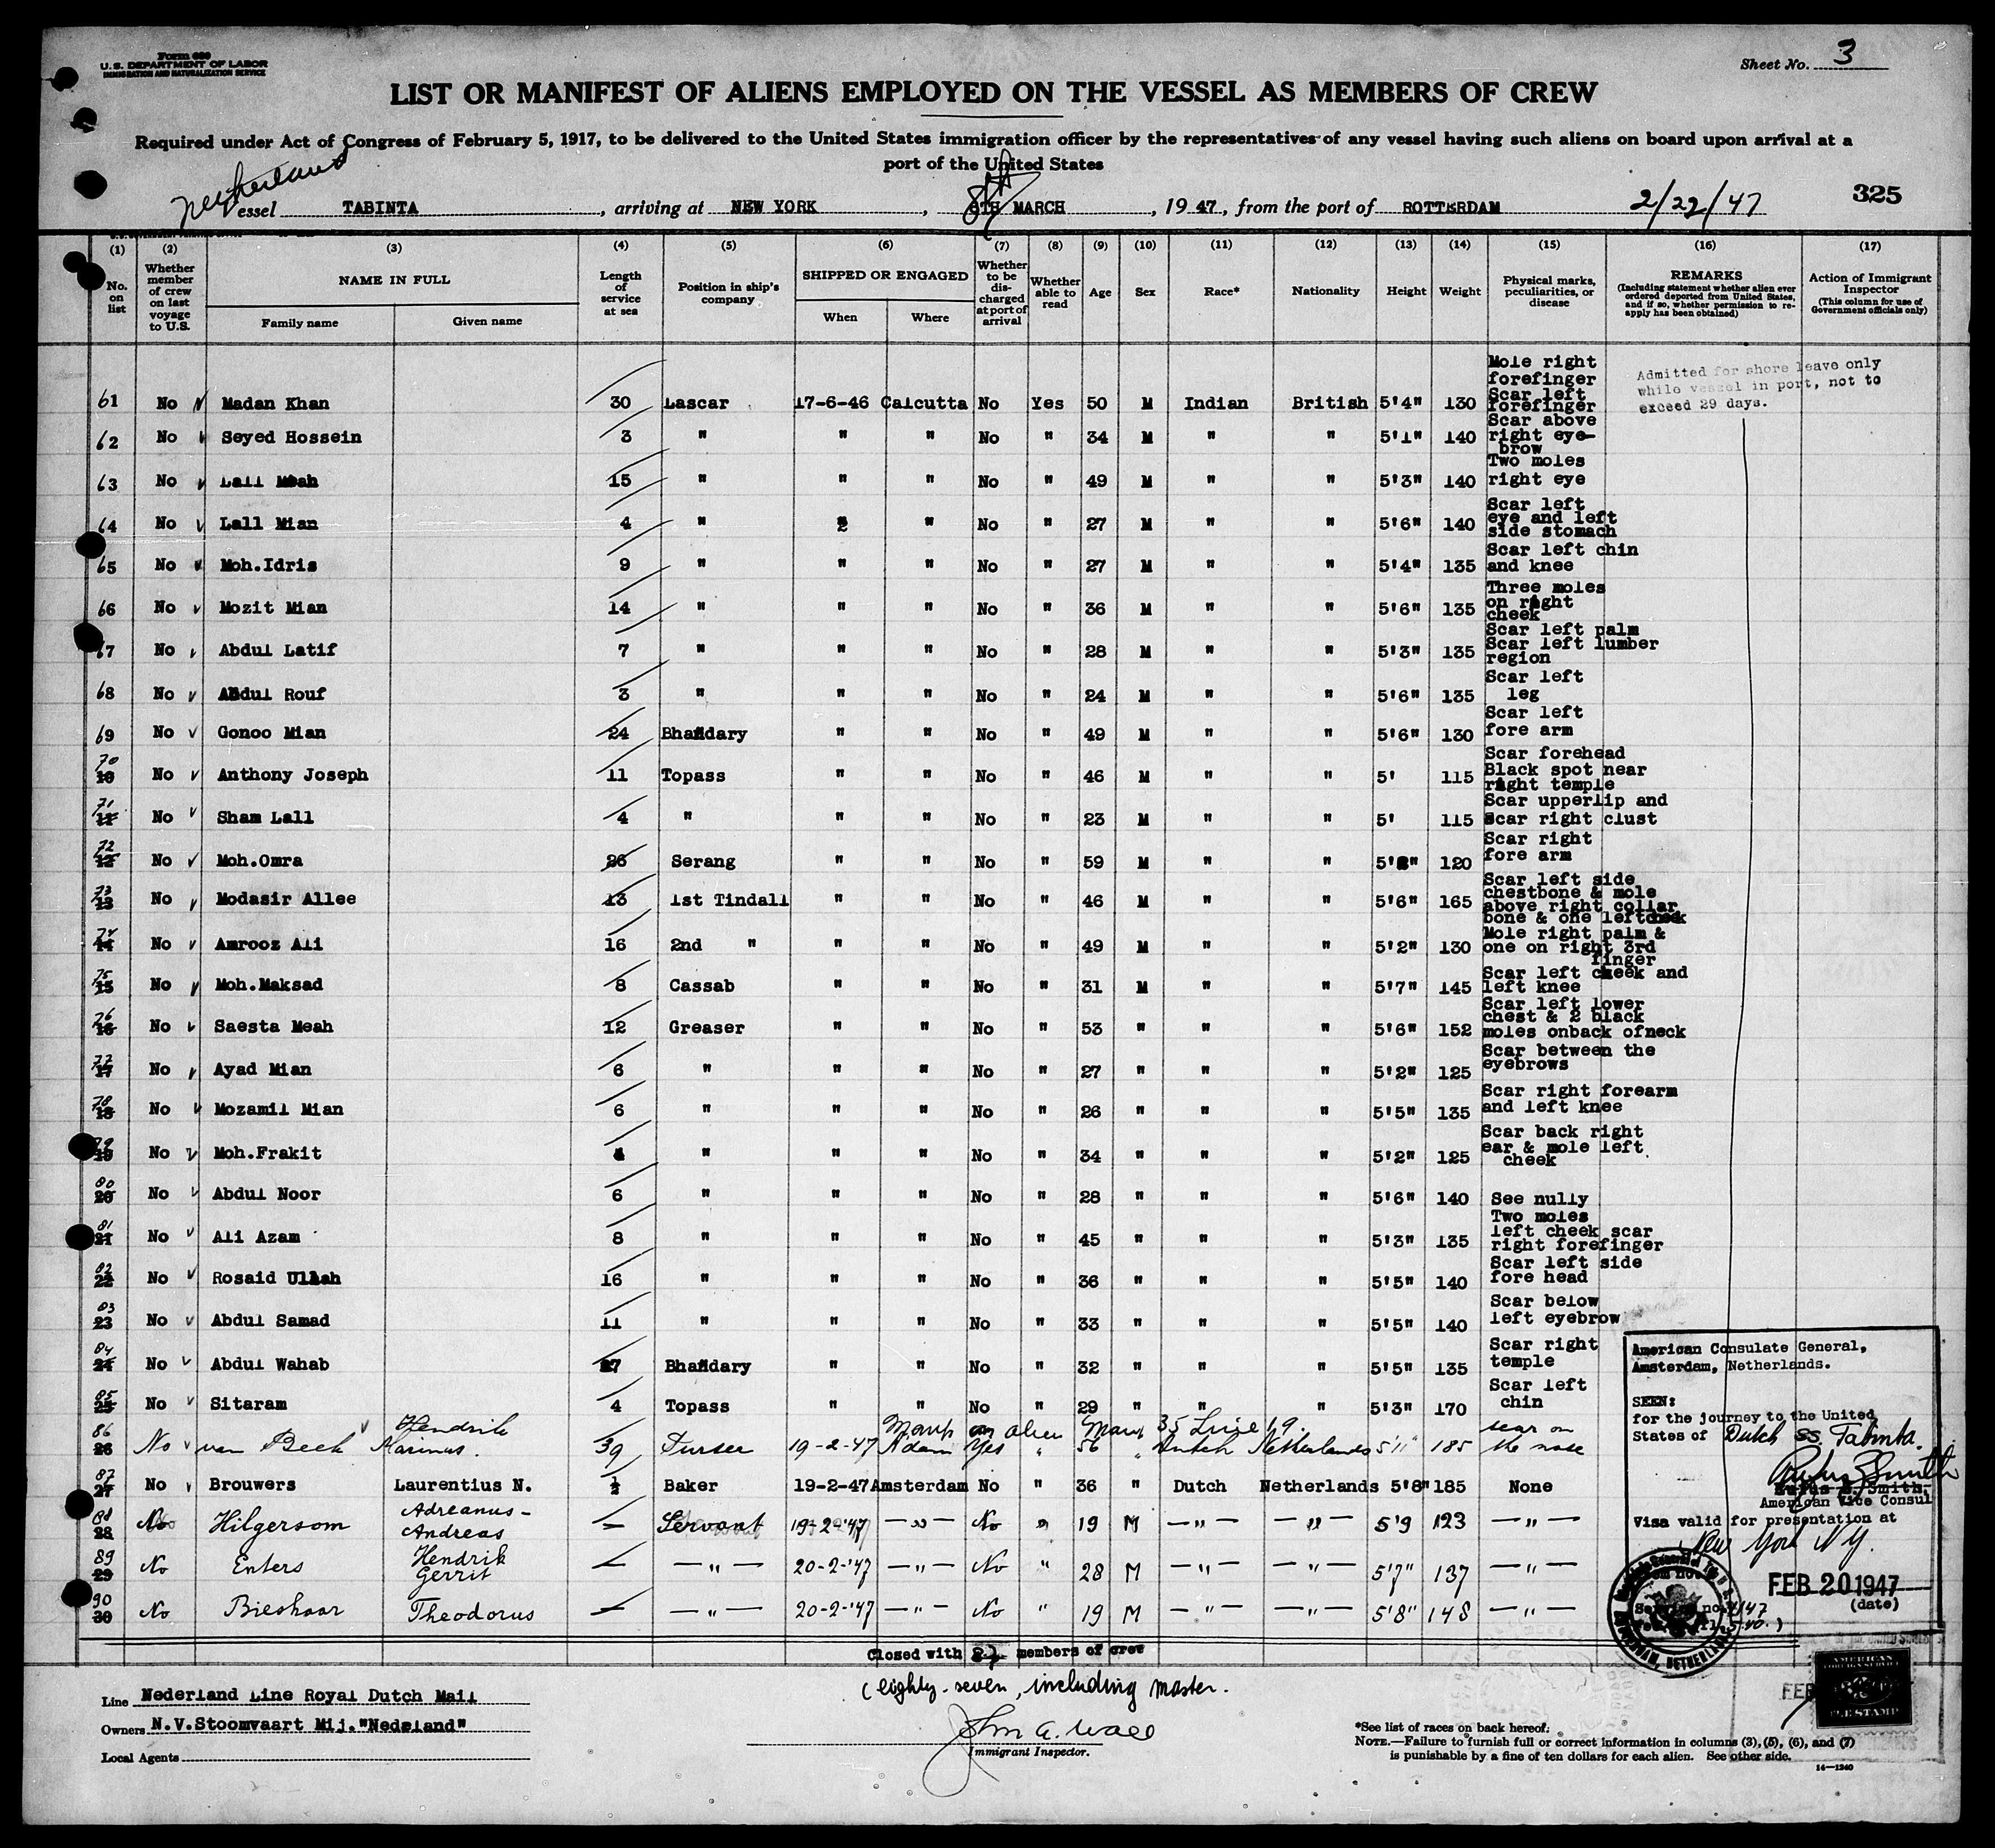 Form 680
U. S. DEPARTMENT OF LABOR
IMMIGRATION AND NATURALIZATION SERVICE
Sheet No. 3
LIST OR MANIFEST OF ALIENS EMPLOYED ON THE VESSEL AS MEMBERS OF CREW
Required under Act of Congress of February 5, 1917, to be delivered to the United States immigration officer by the representatives of any vessel having such aliens on board upon arrival at a
port of the United States
Netherland
Vessel TABINTA, arriving at NEW YORK, 8th MARCH, 1947, from the port of ROTTERDAM 2/22/47 325
(1) (2) (3) (4) (5) (6) (7) (8) (9) (10) (11) (12) (13) (14) (15) (16) (17)
No. on list
Whether member of crew on last voyage to U.S.
NAME IN FULL
Family name Given name
Length of service at sea
Position in ship's company
SHIPPED OR ENGAGED
When Where
Whether to be discharged at port of arrival
Whether able to read
Age Sex Race* Nationality Height Weight
Physical marks, peculiarities, or disease
REMARKS
(Including statement whether alien ever ordered deported from United States, and if so, whether permission to reapply has been obtained)
Action of Immigrant Inspector
(This column for use of Government officials only)
Admitted for shore leave only
while vessel in port, not to
exceed 29 days.
61 No Madan Khan 30 Lascar 17-6-46 Calcutta No Yes 50 M Indian British 5'4" 130 Mole right forefinger Scar left forefinger
62 No Seyed Hossein 3 " " " No " 34 M " " 5'1" 140 Scar above right eye-brow
63 No Lall Meah 15 " " " No " 49 M " " 5'3" 140 Two moles right eye
64 No Lall Mian 4 " " " No " 27 M " " 5'6" 140 Scar left eye and left side stomach
65 No Moh.Idris 9 " " " No " 27 M " " 5'4" 135 Scar left chin and knee
66 No Mozit Mian 14 " " " No " 36 M " " 5'6" 135 Three moles on right cheek
67 No Abdul Latif 7 " " " No " 28 M " " 5'3" 135 Scar left palm Scar left lumber region
68 No Abdul Rouf 3 " " " No " 24 M " " 5'6" 135 Scar left leg
69 No Gonoo Mian 24 Bhandary " " No " 49 M " " 5'6" 130 Scar left fore arm
70 10 No Anthony Joseph 11 Topass " " No " 46 M " " 5' 115 Scar forehead Black spot near right temple
71 11 No Sham Lall 4 " " " No " 23 M " " 5' 115 Scar upperlip and Scar right clust
72 12 No Moh.Omra 26 Serang " " No " 59 M " " 5'2" 120 Scar right fore arm
73 13 No Modasir Allee 13 1st Tindall " " No " 46 M " " 5'6" 165 Scar left side chestbone & mole above right collar bone & one leftcheek
74 14 No Amrooz Ali 16 2nd " " " No " 49 M " " 5'2" 130 Mole right palm & one on right 3rd finger
75 15 No Moh.Maksad 8 Cassab " " No " 31 M " " 5'7" 145 Scar left cheek and left knee
76 16 No Saesta Meah 12 Greaser " " No " 53 " " " 5'6" 152 Scar left lower chest & 2 black moles onback ofneck
77 17 No Ayad Mian 6 " " " No " 27 " " " 5'2" 125 Scar between the eyebrows
78 18 No Mozamil Mian 6 " " " No " 26 " " " 5'5" 135 Scar right forearm and left knee
79 19 No Moh.Frakit " " " No " 34 " " " 5'2" 125 Scar back right ear & mole left cheek
80 20 No Abdul Noor 6 " " " No " 28 " " " 5'6" 140 See nully
81 21 No Ali Azam 8 " " " No " 45 " " " 5'3" 135 Two moles left cheek scar right forefinger
82 22 No Rosaid Ullah 16 " " " No " 36 " " " 5'5" 140 Scar left side fore head
83 23 No Abdul Samad 11 " " " No " 33 " " " 5'5" 140 Scar below left eyebrow
84 24 No Abdul Wahab 27 Bhandary " " No " 32 " " " 5'5" 135 Scar right temple
85 25 No Sitaram 4 Topass " " No " 29 " " " 5'3" 170 Scar left chin
86 26 No van Beek Hendrik Marinus. 39 Purser 19-2-47 A'dam Yes " 56 " Dutch Netherlands 5'11" 185 scar on the nose
87 27 No Brouwers Laurentius N. ½ Baker 19-2-47 Amsterdam No " 36 " Dutch Netherlands 5'8" 185 None
88 28 No Hilgersom Adreanus-Andreas — Servant 19-2-'47 —"— No " 19 M —"— —"— 5'9 123 —"—
89 29 No Enters Hendrik Gerrit — —"— 20-2-'47 —"— No " 28 M —"— —"— 5'7" 137 —"—
90 30 No Bieshaar Theodorus — —"— 20-2-'47 —"— No " 19 M —"— —"— 5'8" 148 —"—
American Consulate General,
Amsterdam, Netherlands.
SEEN:
for the journey to the United
States of Dutch ss. Tabinta.
Rufus E. Smith.
American Vice Consul
Visa valid for presentation at
New York N.Y.
FEB 20 1947
(date)
Closed with 87 members of crew
(eighty-seven, including master.
Line Nederland Line Royal Dutch Mail
Owners N.V.Stoomvaart Mij."Nederland"
Local Agents
John A. Wall
Immigrant Inspector.
*See list of races on back hereof.
NOTE.—Failure to furnish full or correct information in columns (3), (5), (6), and (7)
is punishable by a fine of ten dollars for each alien. See other side.
14—1240